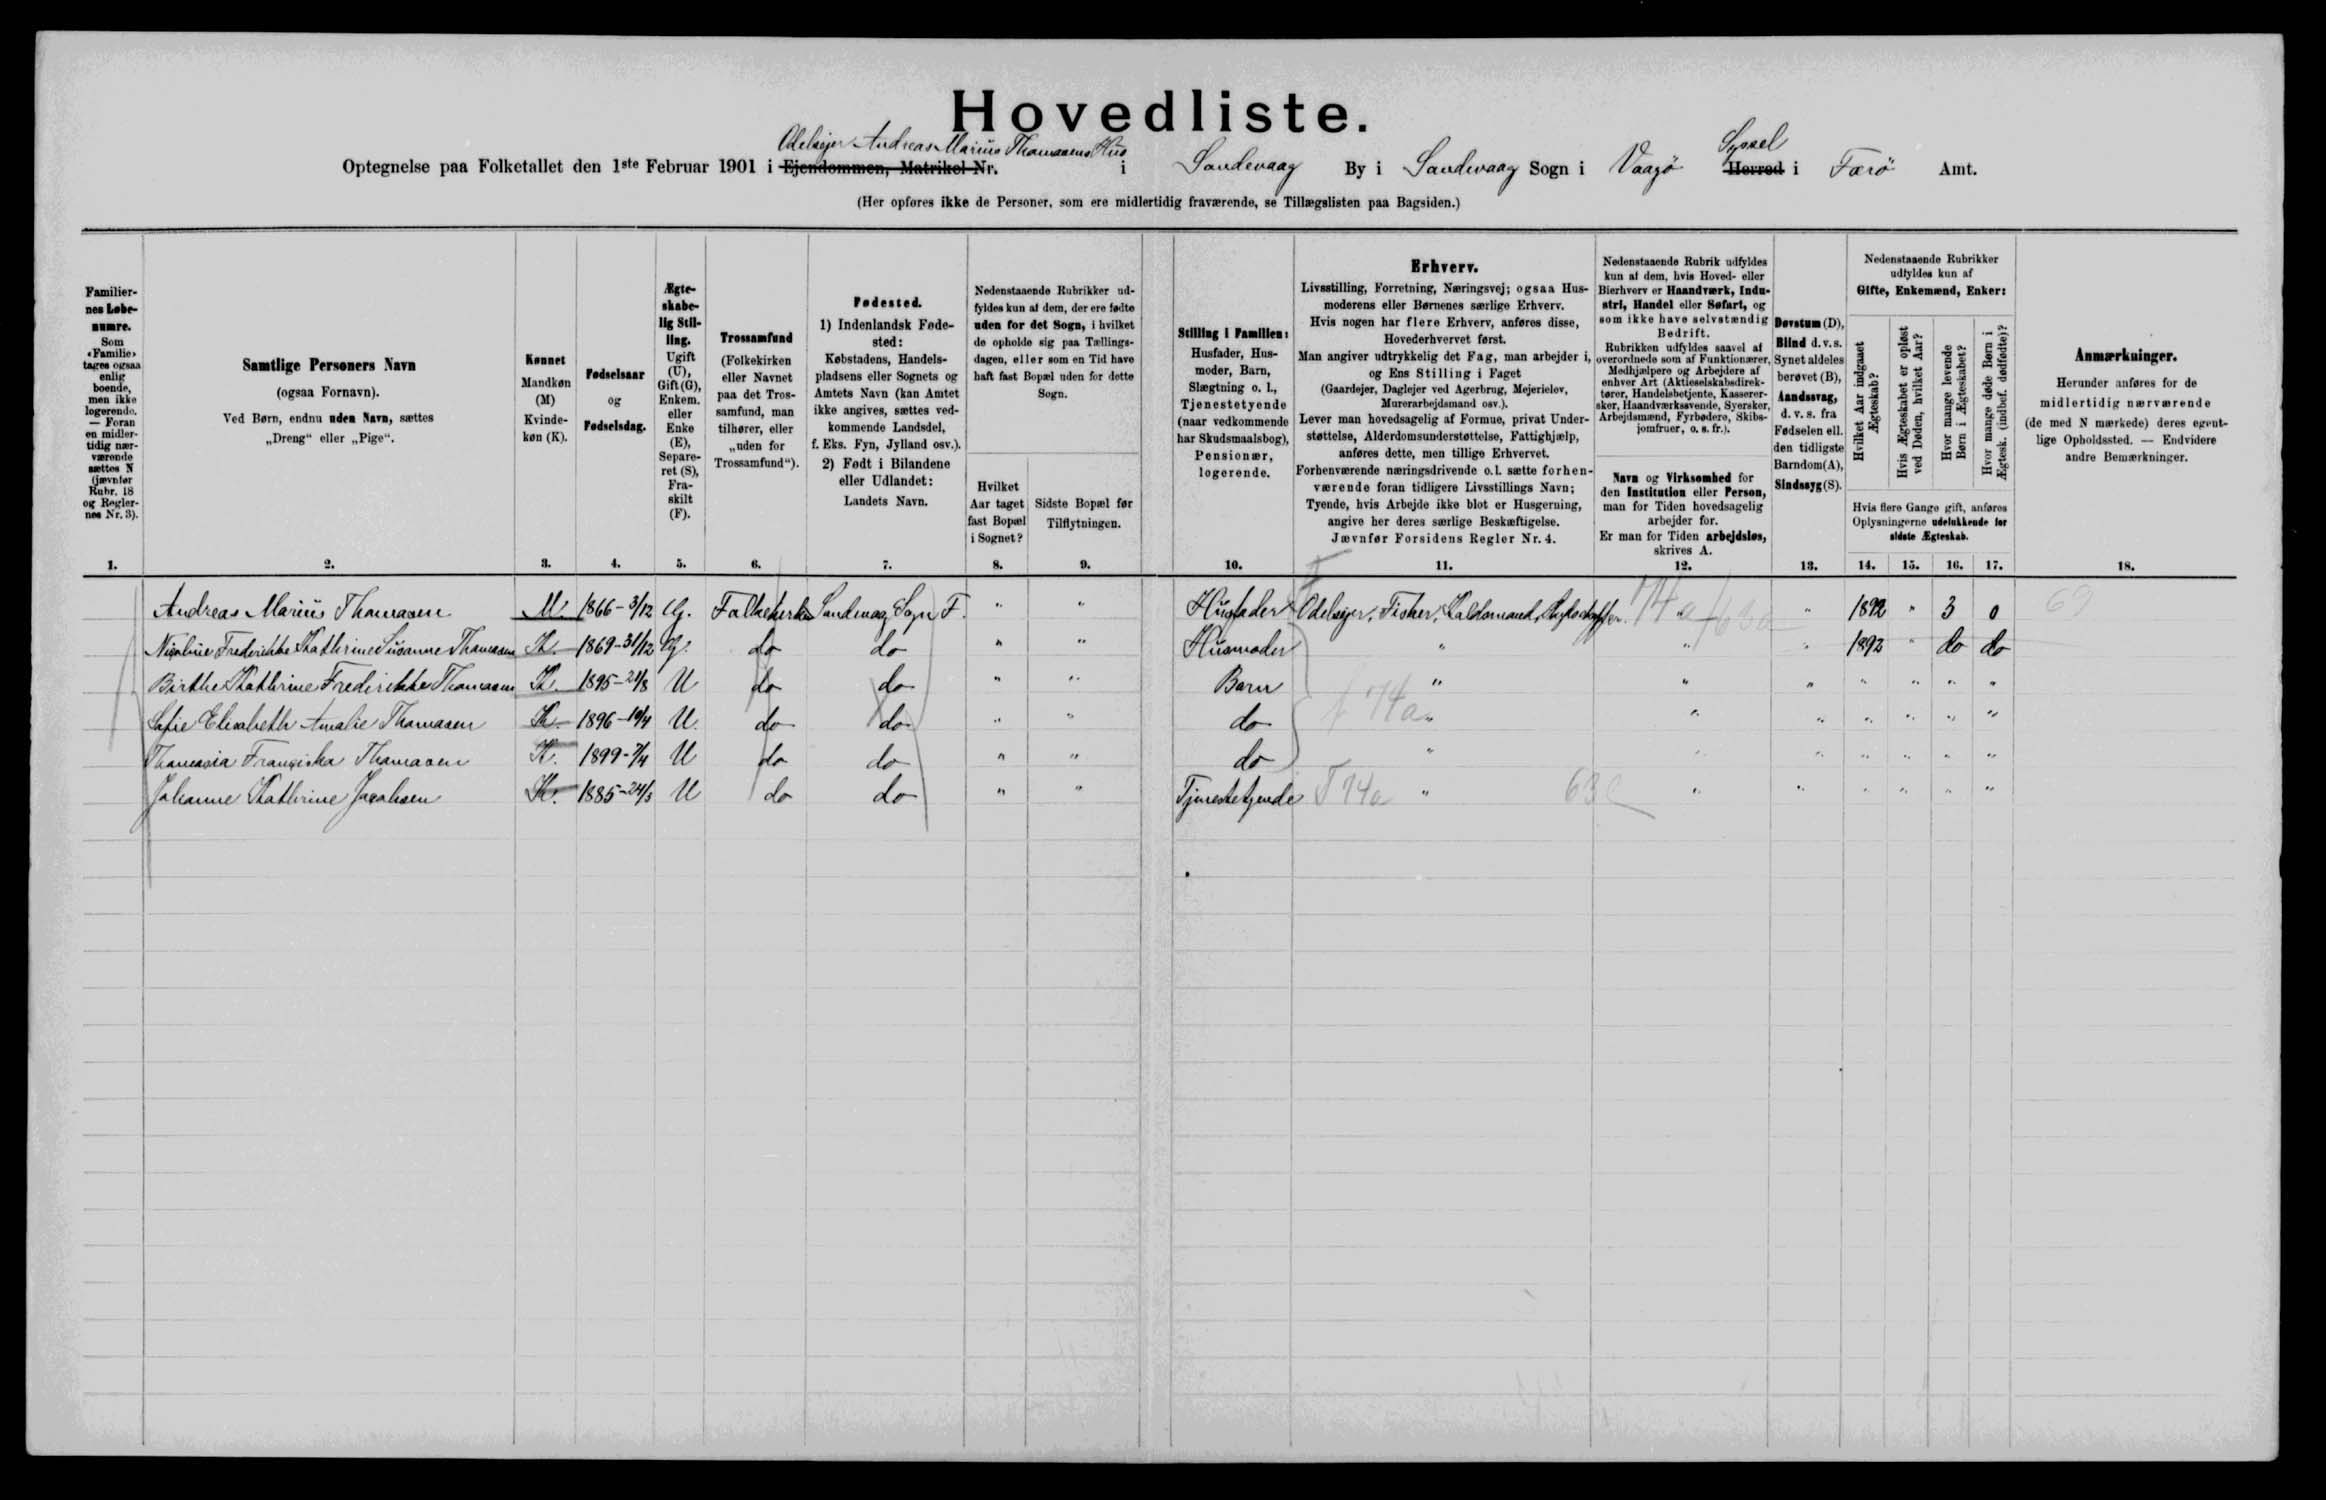 Hovedliste.
Odelsejer Andreas Marius Thomasens Hus
Optegnelse paa Folketallet den 1ste Februar 1901 i Ejendommen, Matrikel Nr. i Sandevaag By i Sandevaag Sogn i Vaagø Syssel Herred i Færø Amt.
(Her opføres ikke de Personer, som ere midlertidig fraværende, se Tillægslisten paa Bagsiden.)
Familiernes Løbenumre.
Som «Familie» tages ogsaa enlig boende, men ikke logerende. — Foran en midlertidig nærværende sættes N (jævnfør Rubr. 18 og Reglernes Nr. 3).
Samtlige Personers Navn
(ogsaa Fornavn).
Ved Børn, endnu uden Navn, sættes
„Dreng“ eller „Pige“.
Kønnet
Mandkøn (M)
Kvindekøn (K).
Fødselsaar
og
Fødselsdag.
Ægteskabelig Stilling.
Ugift (U), Gift (G), Enkem. eller Enke (E), Separeret (S), Fraskilt (F).
Trossamfund
(Folkekirken eller Navnet paa det Trossamfund, man tilhører, eller „uden for Trossamfund“).
Fødested.
1) Indenlandsk Fødested:
Købstadens, Handelspladsens eller Sognets og Amtets Navn (kan Amtet ikke angives, sættes vedkommende Landsdel, f. Eks. Fyn, Jylland osv.).
2) Født i Bilandene eller Udlandet:
Landets Navn.
Nedenstaaende Rubrikker udfyldes kun af dem, der ere fødte uden for det Sogn, i hvilket de opholde sig paa Tællingsdagen, eller som en Tid have haft fast Bopæl uden for dette Sogn.
Hvilket Aar taget fast Bopæl i Sognet?
Sidste Bopæl før Tilflytningen.
Stilling i Familien:
Husfader, Husmoder, Barn, Slægtning o. l., Tjenestetyende (naar vedkommende har Skudsmaalsbog), Pensionær, logerende.
Erhverv.
Livsstilling, Forretning, Næringsvej; ogsaa Husmoderens eller Børnenes særlige Erhverv.
Hvis nogen har flere Erhverv, anføres disse, Hovederhvervet først.
Man angiver udtrykkelig det Fag, man arbejder i, og Ens Stilling i Faget
(Gaardejer, Daglejer ved Agerbrug, Mejerielev, Murerarbejdsmand osv.).
Lever man hovedsagelig af Formue, privat Understøttelse, Alderdomsunderstøttelse, Fattighjælp, anføres dette, men tillige Erhvervet.
Forhenværende næringsdrivende o.l. sætte forhenværende foran tidligere Livsstillings Navn;
Tyende, hvis Arbejde ikke blot er Husgerning, angive her deres særlige Beskæftigelse.
Jævnfør Forsidens Regler Nr. 4.
Nedenstaaende Rubrik udfyldes kun af dem, hvis Hoved- eller Bierhverv er Haandværk, Industri, Handel eller Søfart, og som ikke have selvstændig Bedrift.
Rubrikken udfyldes saavel af overordnede som af Funktionærer, Medhjælpere og Arbejdere af enhver Art (Aktieselskabsdirektører, Handelsbetjente, Kasserersker, Haandværkssvende, Syersker, Arbejdsmænd, Fyrbødere, Skibsjomfruer, o. s. fr.).
Navn og Virksomhed for den Institution eller Person, man for Tiden hovedsagelig arbejder for.
Er man for Tiden arbejdsløs, skrives A.
Døvstum (D), Blind d. v. s. Synet aldeles berøvet (B), Aandssvag, d. v. s. fra Fødselen ell. den tidligste Barndom (A), Sindssyg (S).
Nedenstaaende Rubrikker udfyldes kun af
Gifte, Enkemænd, Enker:
Hvilket Aar indgaaet Ægteskab?
Hvis Ægteskabet er opløst ved Døden, hvilket Aar?
Hvor mange levende Børn i Ægteskabet?
Hvor mange døde Børn i Ægtesk. (indbef. dødfødte)?
Hvis flere Gange gift, anføres Oplysningerne udelukkende for sidste Ægteskab.
Anmærkninger.
Herunder anføres for de midlertidig nærværende (de med N mærkede) deres egentlige Opholdssted. — Endvidere andre Bemærkninger.
1. 2. 3. 4. 5. 6. 7. 8. 9. 10. 11. 12. 13. 14. 15. 16. 17. 18.
Andreas Marius Thomasen M. 1866-3/12 G. Folkekirken Sandevaag Sogn F. " " Husfader Odelsejer, Fisker, " " 1892 " 3 0 69
Nicoline Frederikke Kathrine Susanne Thomasen K. 1869-31/12 G. do do " " Husmoder " " " 1892 " do do
Birthe Kathrine Frederikke Thomasen K. 1895-21/8 U do do " " Barn " " " " " " "
Sofie Elisabeth Amalie Thomasen K 1896-19/4 U. do do " " do 74a " " " " " " "
Thomasia Franziska Thomasen K. 1899-7/4 U do do " " do " " " " " " "
Johanne Kathrine Jacobsen K. 1885-24/3 U do do " " Tjenestetyende T 74a " " " " " " "